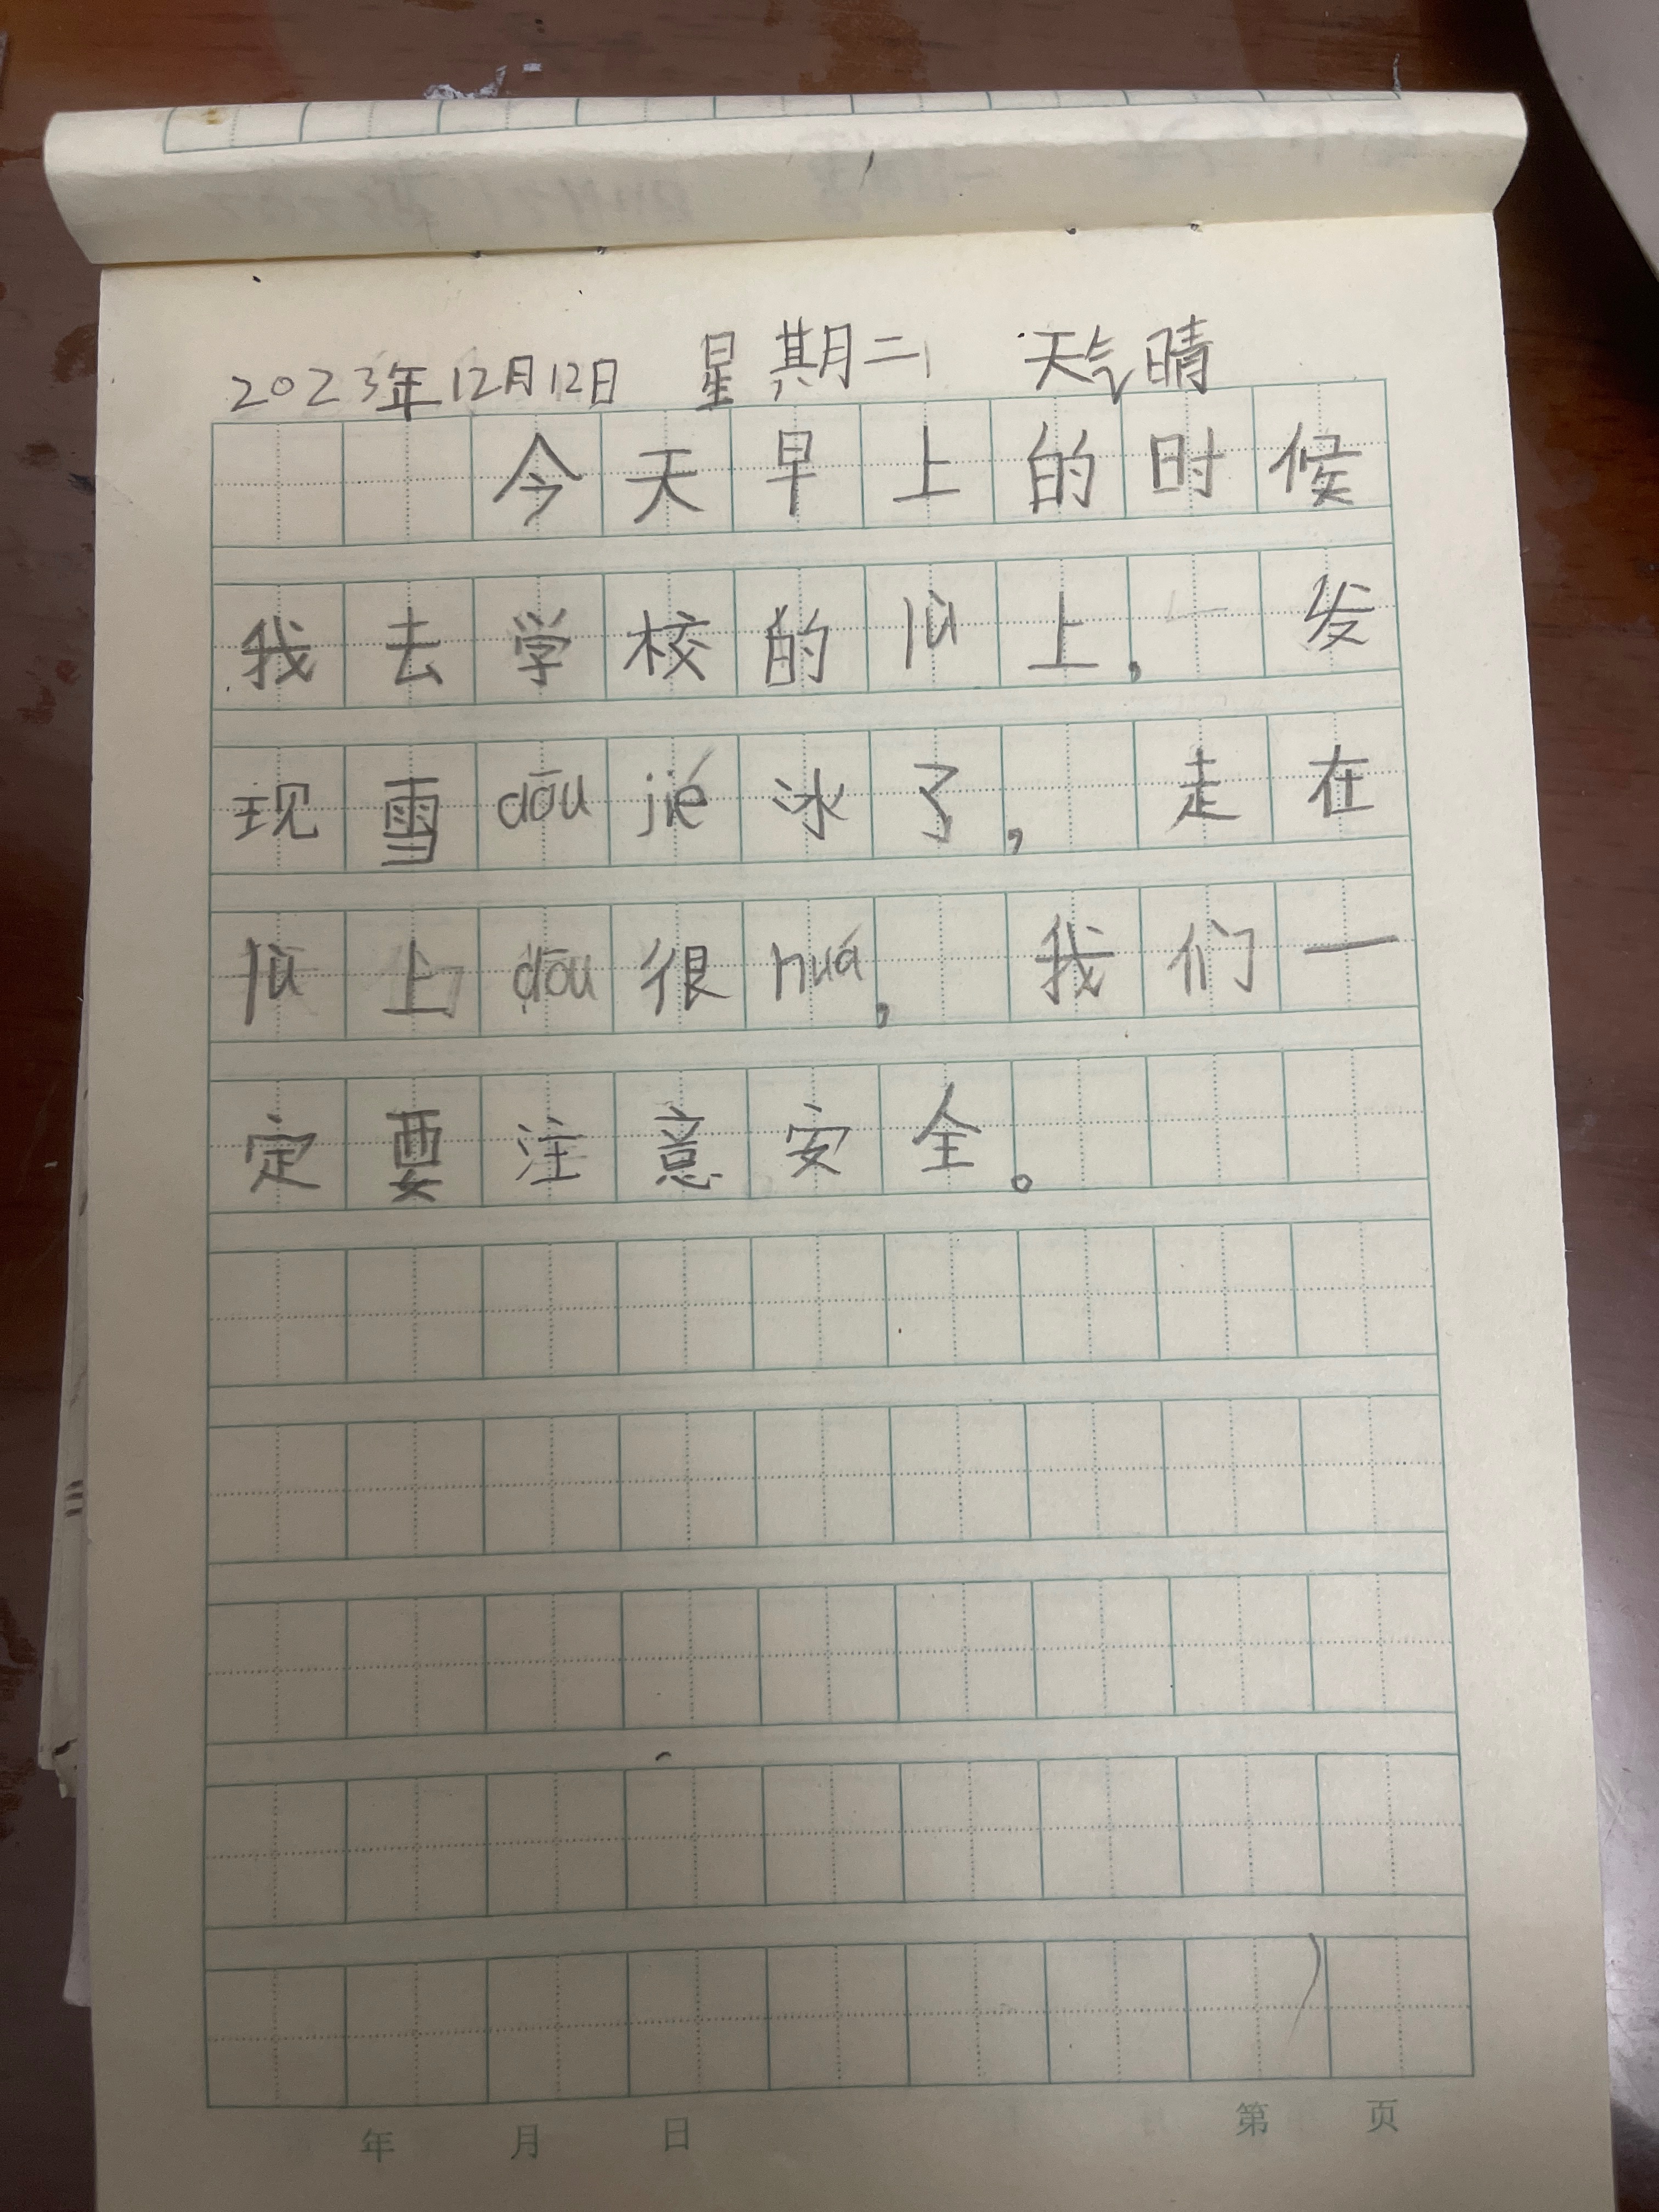 2023年12月12日 星期二 天气晴
今天早上的时候
我去学校的lù上，发
现雪dōujié冰了，走在
lù上dōu很huá，我们一
定要注意安全。
年 月 日 第 页